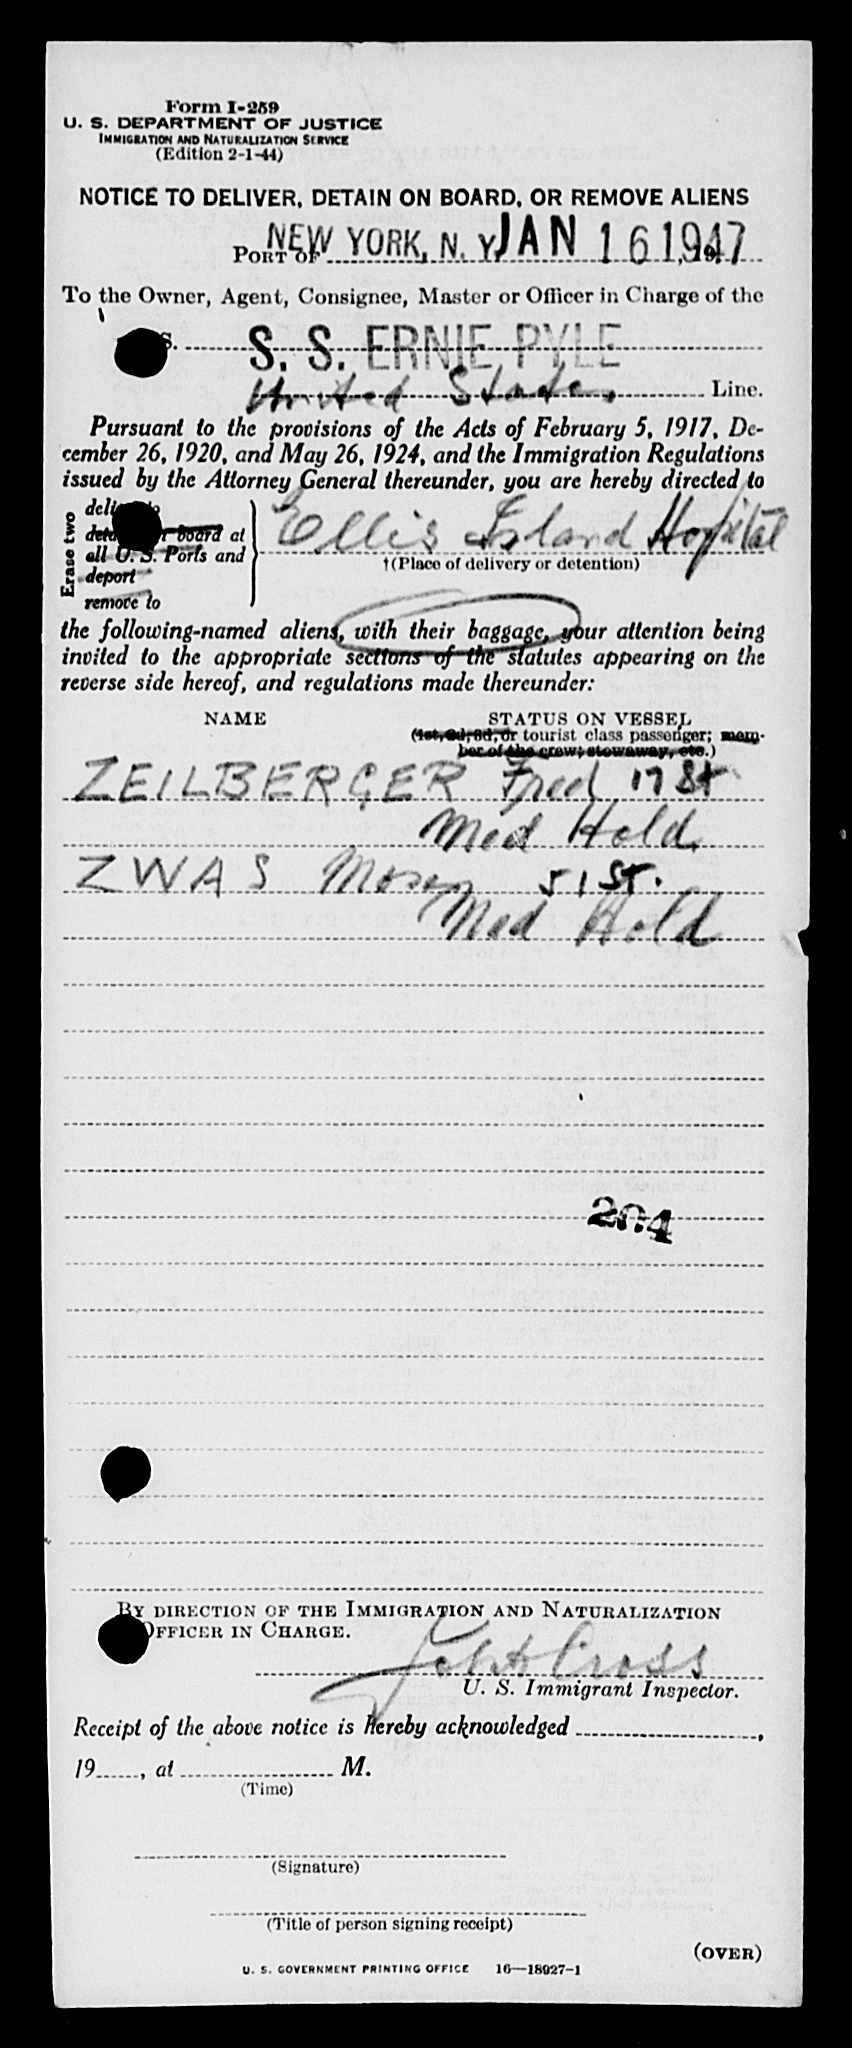 Form I-259
U. S. DEPARTMENT OF JUSTICE
IMMIGRATION AND NATURALIZATION SERVICE
(Edition 2-1-44)
NOTICE TO DELIVER, DETAIN ON BOARD, OR REMOVE ALIENS
PORT OF NEW YORK, N. Y. JAN 16 1947
To the Owner, Agent, Consignee, Master or Officer in Charge of the
S. S. S. ERNIE PYLE
United States Line.
Pursuant to the provisions of the Acts of February 5, 1917, De-
cember 26, 1920, and May 26, 1924, and the Immigration Regulations
issued by the Attorney General thereunder, you are hereby directed to
Erase two
board at
all U. S. Ports and
deport
remove to
Ellis Island Hospital
†(Place of delivery or detention)
the following-named aliens, with their baggage, your attention being
invited to the appropriate sections of the statutes appearing on the
reverse side hereof, and regulations made thereunder:
NAME STATUS ON VESSEL
(1st, 2d, 3d, or tourist class passenger; mem-
ber of the crew; stowaway, etc.)
ZEILBERGER Fred 17 St
Med Hold
ZWAS Moses 51 St.
Med Hold
204
BY DIRECTION OF THE IMMIGRATION AND NATURALIZATION
OFFICER IN CHARGE.
Cross
U. S. Immigrant Inspector.
Receipt of the above notice is hereby acknowledged ,
19 , at M.
(Time)
(Signature)
(Title of person signing receipt)
(OVER)
U. S. GOVERNMENT PRINTING OFFICE 16—18927-1